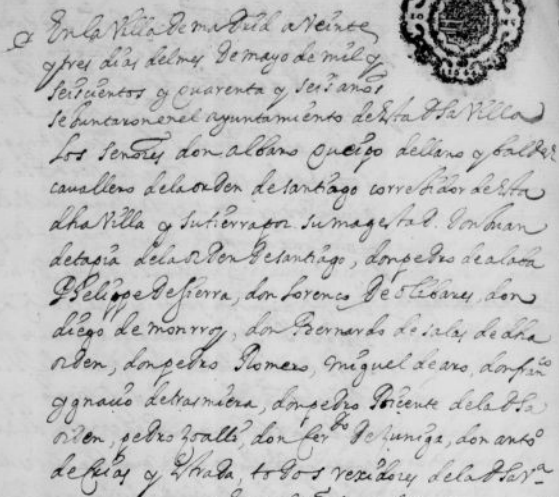 En la Villa de madrid a Veinte
y tres dias del mes de mayo de mil y
seiscientos y quarenta y seis años
se Juntaron en el ayuntamiento de Esta dha Villa
Los señores don albaro queipo de llano y balde
cauallero de la orden de santiago corregidor de Esta
dha Villa y su tierra por su magestad. Don Juan
de tapia de la orden de santiago, don pedro de alaba
Phelippe de sierra, don Lorenço de olibares, don
diego de monrroy, don Bernardo de salas de dha
orden, don pedro Romero, miguel de aro, don franco
ygnacio de trasmiera, don pedro Vicente de la dha
orden, pedro don ferdo de zuniga, don anto
de frias y estrada, todos rexidores de la dha Va